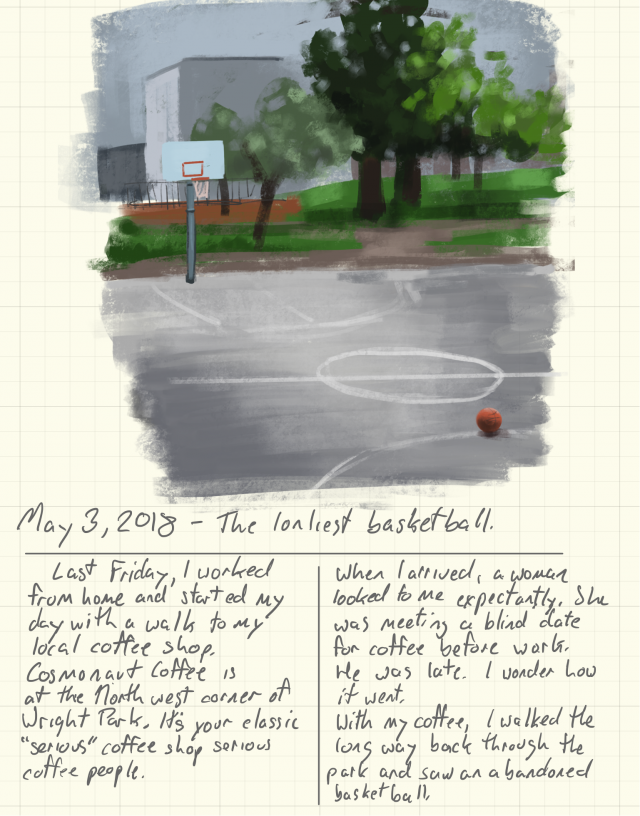 May 3, 2018 - The lonliest basketball.
Last Friday, I worked
from home and started my
day with a walk to my
local coffee shop.
Cosmonaut Coffee is
at the North west corner of
Wright Park. It's your classic
"serious" coffee shop serious
coffee people.
When I arrived, a woman
looked to me expectantly. She
was meeting a blind date
for coffee before work.
He was late. I wonder how
it went.
With my coffee, I walked the
long way back through the
park and saw an abandoned
basketball.